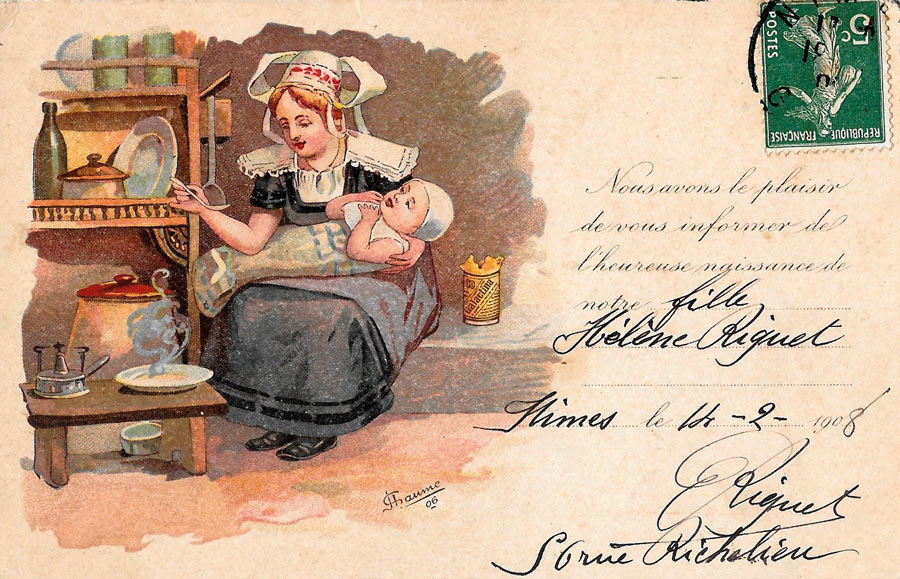 5c
POSTES
REPUBLIQUE FRANÇAISE
Nous avons le plaisir
de vous informer de
l'heureuse naissance de
notre fille
Hélène Riguet
Nîmes le 14 - 2 - 1908
Riguet
56 rue Richelieu
Thaume
06